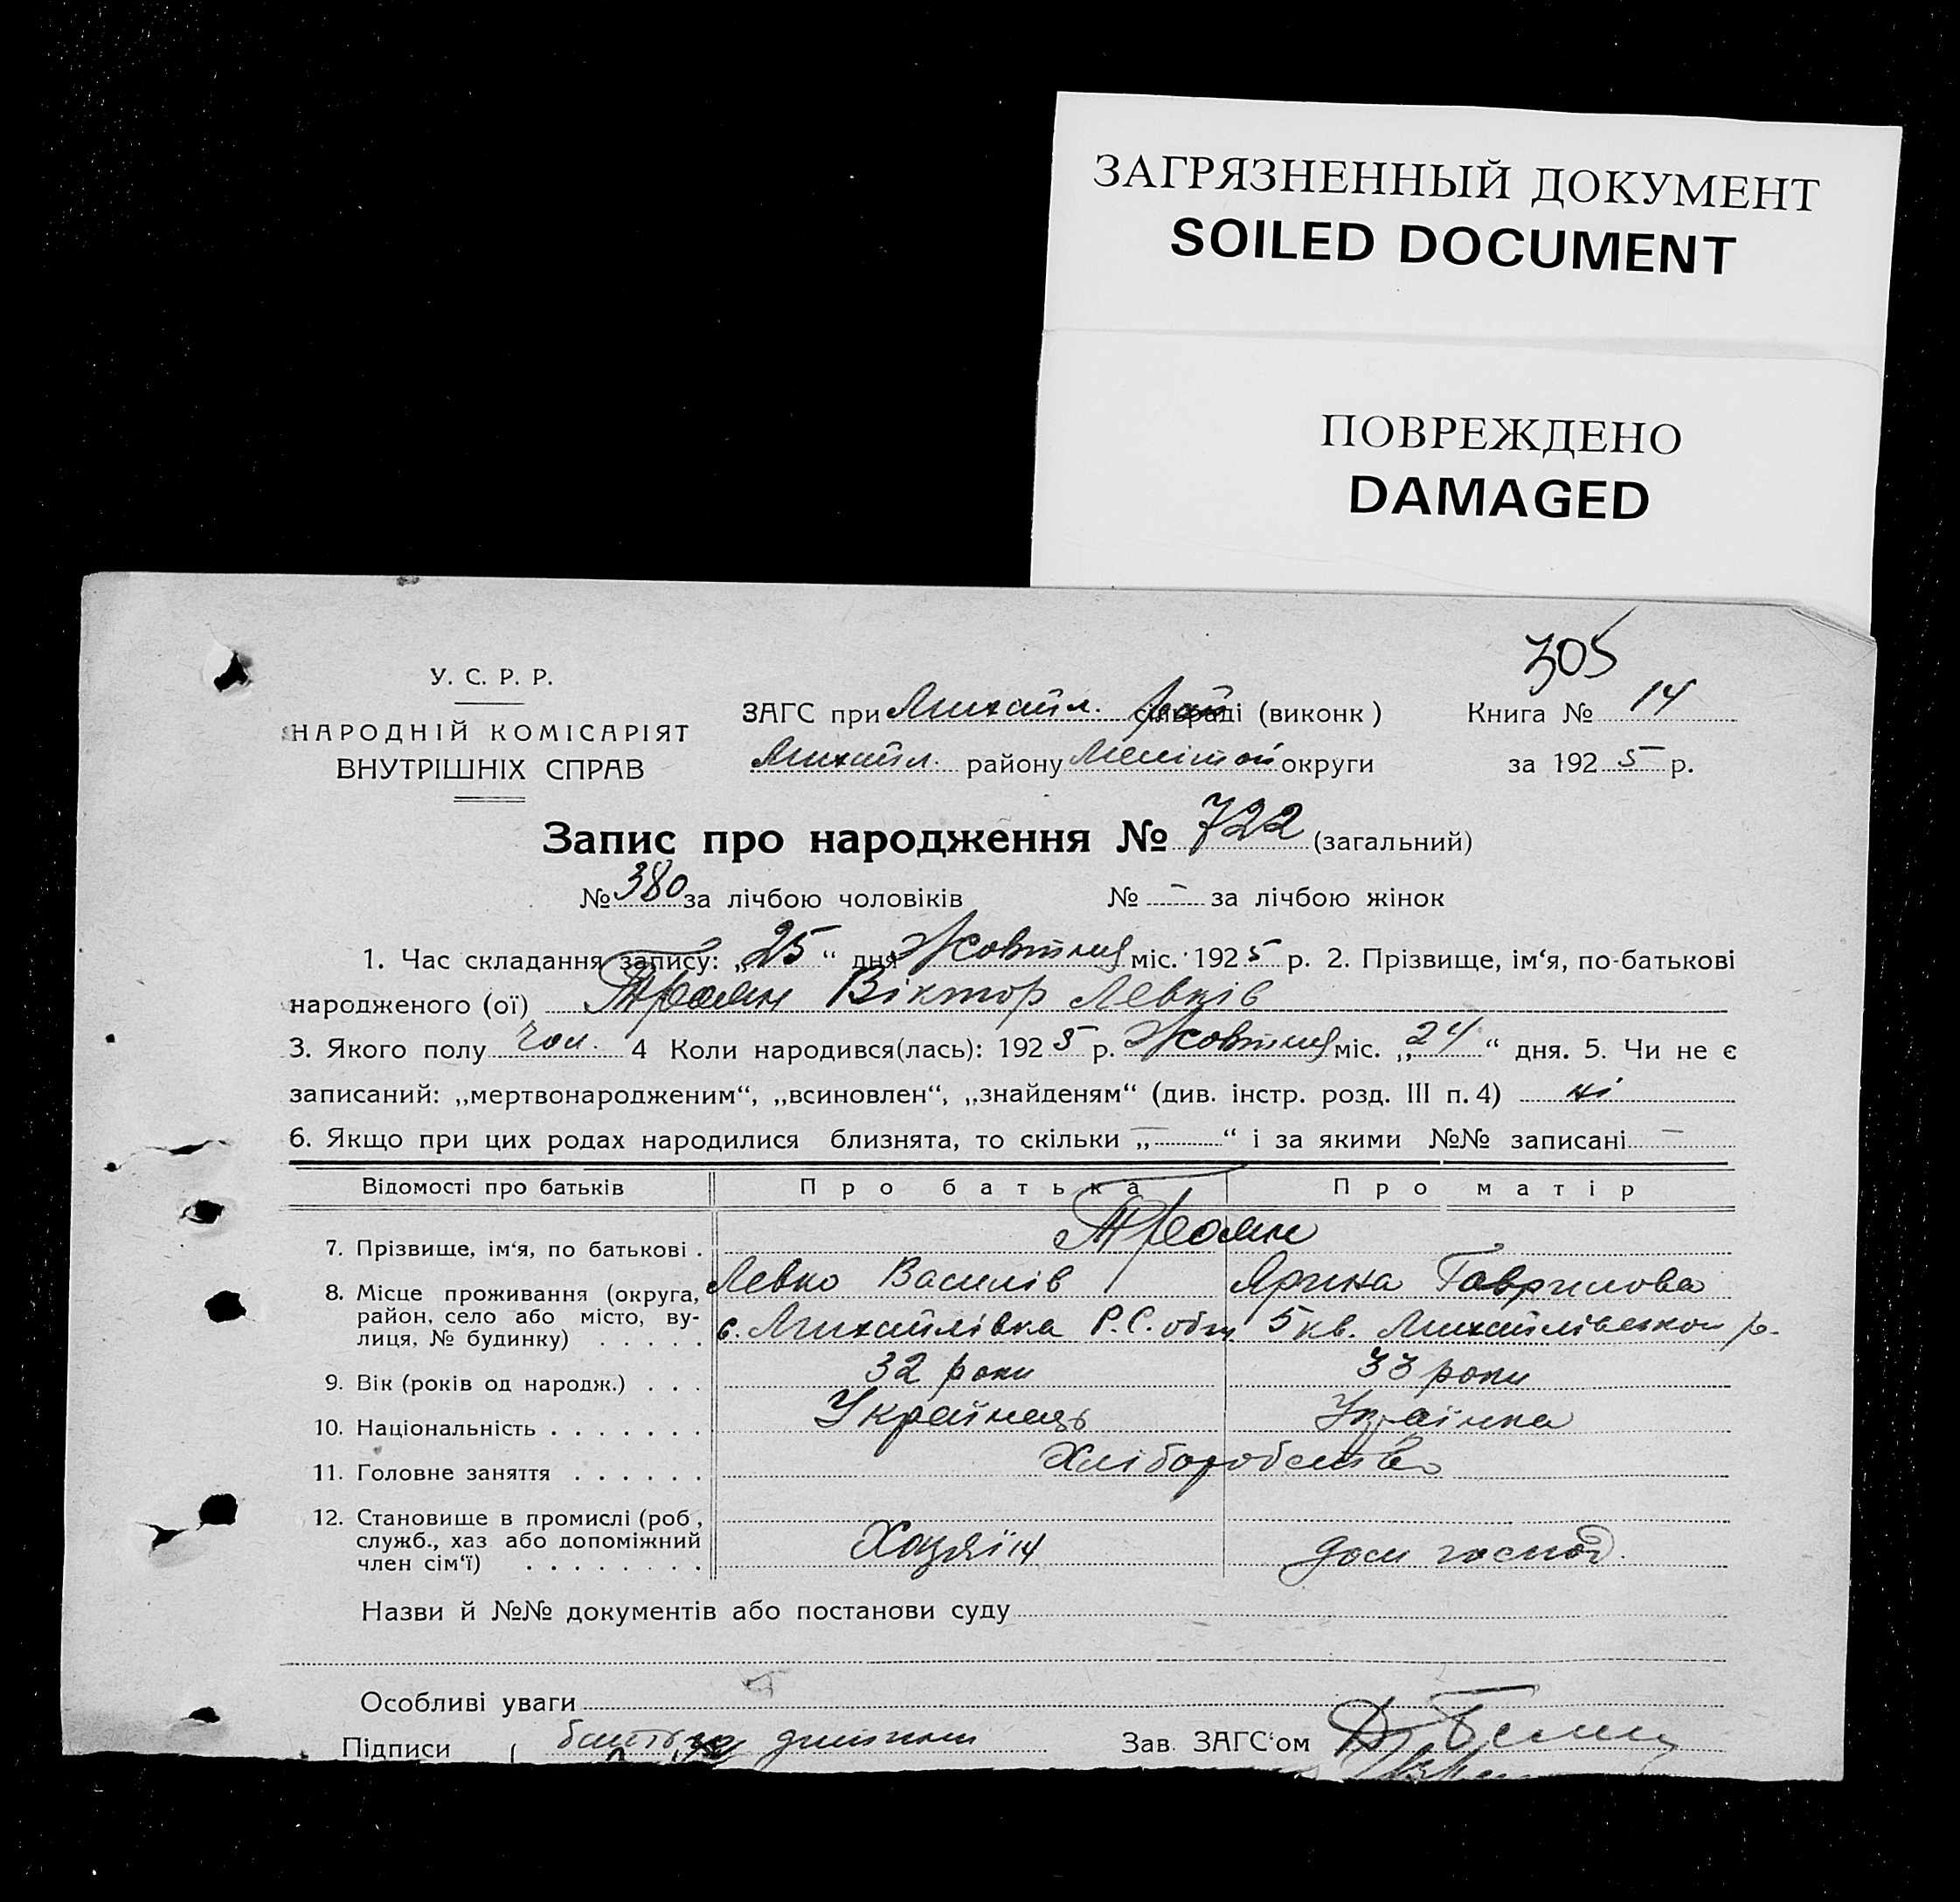 ЗАГРЯЗНЕННЫЙ ДОКУМЕНТ
SOILED DOCUMENT
ПОВРЕЖДЕНО
DAMAGED
305
У. С. Р. Р.
НАРОДНІЙ КОМІСАРІЯТ
ВНУТРІШНІХ СПРАВ
ЗАГС при Михайл. рай сільраді (виконк)
Михайл. району Меліт ої округи
Книга № 14
за 1925 р.
Запис про народження № 722 (загальний)
№ 380 за лічбою чоловіків № – за лічбою жінок
1. Час складання запису: „25“ дня Жовтня міс. 1925 р. 2. Прізвище, ім‘я, по-батькові
народженого (ої) Троян Віктор Левків
3. Якого полу чол. 4 Коли народився(лась): 1925 р. Жовтня міс. „24“ дня. 5. Чи не є
записаний: „мертвонародженим“, „всиновлен“, „знайденям“ (див. інстр. розд. III п. 4) ні
6. Якщо при цих родах народилися близнята, то скільки „—“ і за якими №№ записані —
Відомості про батьків Про батька Про матір
7. Прізвище, ім‘я, по батькові . Троян
Левко Василів Ярина Гаврилова
8. Місце проживання (округа, район, село або місто, вулиця, № будинку) . . . . . с. Михайлівка Р.С. общ 5 кв. Михайлівської р.
9. Вік (років од народж.) . . . 32 роки 33 роки
10. Національність . . . . . . . Українець Українка
11. Головне заняття . . . . . . Хліборобство
12. Становище в промислі (роб, служб., хаз або допоміжний член сім‘ї) . . . . . . . . Хазяїн дом господ.
Назви й №№ документів або постанови суду
Особливі уваги
Підписи ( батька Зав. ЗАГС‘ом